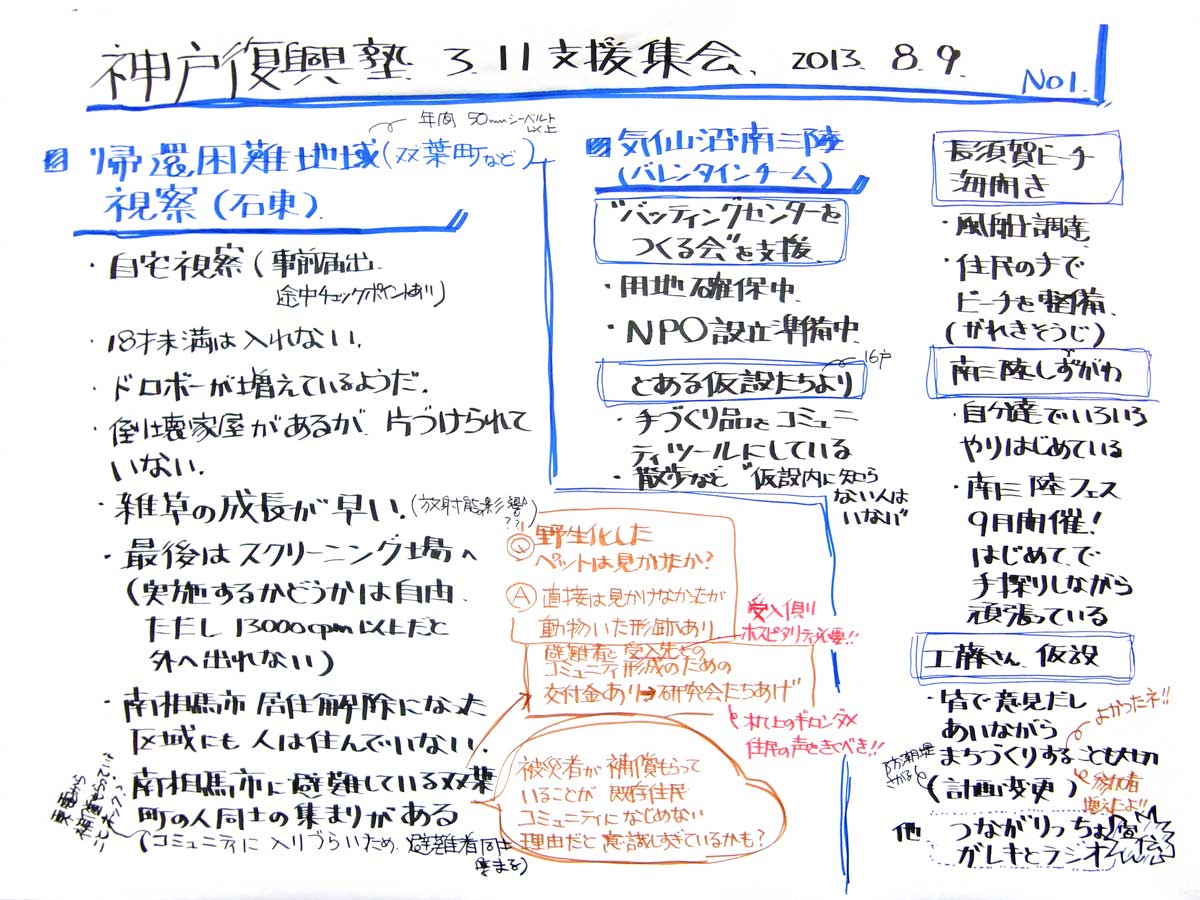 神戸復興塾 3.11支援集会、2013. 8. 9.
No1.
年間 50mmシーベルト
以上
帰還困難地域(双葉町など)
視察(石東).
・自宅視察(事前届出.
途中チェックポイントあり)
・18才未満は入れない.
・ドロボーが増えているようだ.
・倒壊家屋があるが.片づけられて
いない.
・雑草の成長が早い.(放射能の影響
??)
・最後はスクリーニング場へ
(実施するかどうかは自由.
ただし 13000cpm以上だと
外へ出れない)
・南相馬市 居住解除になった
区域にも人は住んでいない.
・南相馬市に避難している双葉
町の人同士の集まりがある
(コミュニティに入りづらいため.避難者同士
集まる)
東電から
補償もらってい
ことがネック?
気仙沼・南三陸
(バレンタインチーム)
"バッティングセンターを
つくる会"を支援.
・用地確保中.
・NPO設立準備中.
16戸
とある仮設たちより
・手づくり品をコミュニ
ティツールにしている
・散歩など "仮設内に知ら
ない人は
いない"
Q 野生化した
ペットは見かけたか?
A 直接は見かけなかったが
動物いた形跡あり
受入側り
ホスピタリティ必要!!
避難者と受入先との
コミュニティ形成のための
交付金あり→研究会たちあげ
村上のギモンダメ
住民の声をきくべき!!
被災者が補償もらって
いることが 既存住民
コミュニティになじめない
理由だと意識しすぎているかも?
長須賀ビーチ
海開き
・風船調達
・住民の手で
ビーチを整備.
(がれきそうじ)
南三陸しずがわ
・自分達でいろいろ
やりはじめている
・南三陸フェス
9月開催!
はじめてで
手探りしながら
頑張っている
工藤さん 仮設
・皆で意見だし
あいながら
よかったネ!!
まちづくりすることも大切
防潮堤
さがると
(計画変更)
参加者
増えたよ!!
他. つながりっちょ
ガレキとラジオ